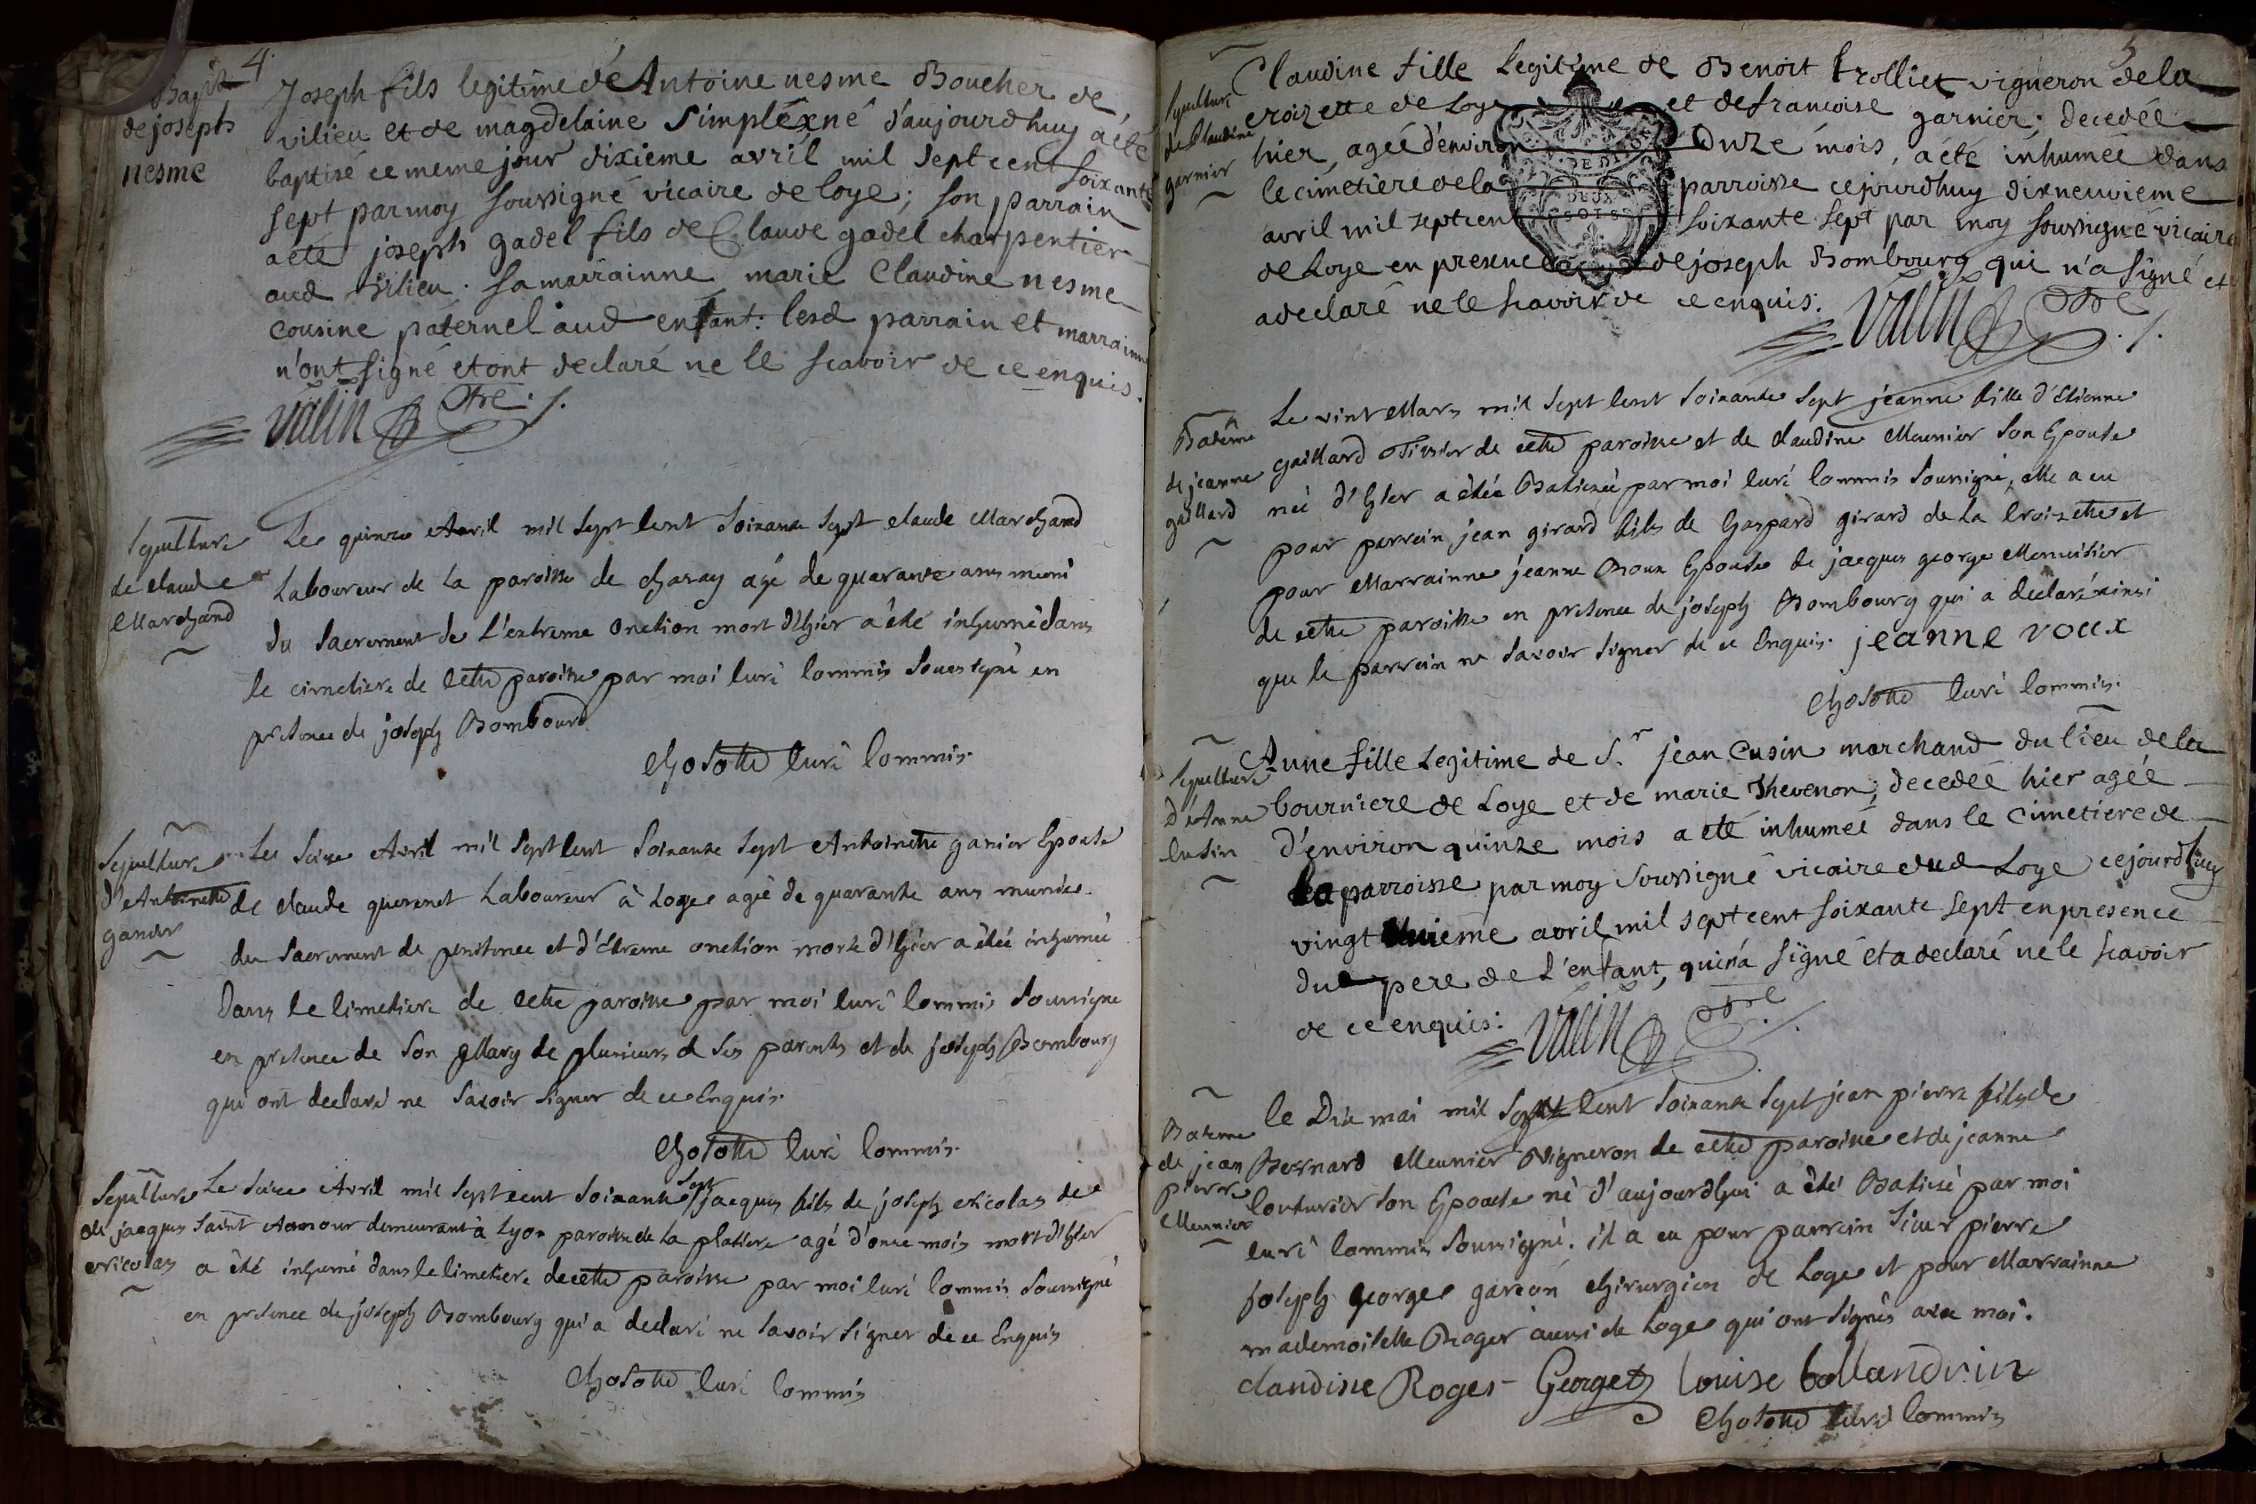 4
Bapte
de joseph
nesme
Joseph fils legitime de Antoine nesme Boucher de
vilieu et de magdelaine Simplex né d'aujourdhuy a été
baptisé ce meme jour dixieme avril mil sept cent soixante
sept par moy soussigné vicaire de loye; son parrain
a été joseph gadel fils de Claude gadel charpentier
aud vilieu. sa marrainne marie Claudine nesme
cousine paternel aud enfant: lesd parrain et marrainne
n'ont signé et ont declaré ne le scavoir de ce enquis.
valin ptre
Sepulture
de claude
Marchand
Le quinze Avril mil Sept Cent Soixante Sept claude Marchand
Laboureur de La paroisse de charay agé de quarante ans muni
du Sacrement de L'extreme onction mort d'hier a été inhumé dans
le cimetiere de Cette paroisse par moi Curé Commis Soussigné en
presence de joseph Bombourd
Chosotte Curé Commis.
Sepulture
d'Antoinette
ganier
Le Seize Avril mil Sept Cent Soixante Sept Antoinette ganier Epouse
de claude guerenet Laboureur à Loye agée de quarante ans munie
du Sacrement de penitence et d'Etreme onction morte d'hier a étée inhumée
Dans le Cimetiere de Cette paroisse par moi Curé Commis Soussigné
en presence de Son Mary de plusieurs de Ses parents et de joseph Bombourg
qui ont declaré ne Savoir Signer de ce Enquis.
Chosotte Curé Commis.
Sepulture
de jacques
Nicolas
Le Seize Avril mil Sept cent Soixante Sept jacques fils de joseph Nicolas de
Saint Amour demeurant à Lyon paroisse de La platiere agé d'onze mois mort d'hier
a été inhumé dans le Cimetiere de cette paroisse par moi Curé Commis Soussigné
en presence de joseph Bombourg qui a declaré ne Savoir Signer de ce Enquis
Chosotte Curé Commis
5
Sepulture
de Claudine
garnier
Claudine fille Legitime de Benoit trolliet vigneron de la
croizette de Loye et de francoise garnier; decedée
hier, agée d'environ onze mois, a été inhumée dans
le cimetiere de la parroisse ce jourdhuy dixneuvieme
avril mil sept cent soixante sept par moy soussigné vicaire
de Loye en presence de joseph Bombourg qui n'a signé et
a declaré ne le scavoir de ce enquis.
DE DIX
DEUX
SOLS
valin ptre
Batême
de jeanne
gaillard
Le vint Mars mil Sept Cent Soixante Sept jeanne fille d'Etienne
gaillard Tissier de cette paroisse et de claudine Meunier Son Epouse
née d'hier a étée Batisée par moi Curé Commis Soussigné, elle a eu
pour parrein jean girard fils de Gaspard girard de La Croizette et
pour Marrainne jeanne Roux Epouse de jacques george Menuisier
de cette paroisse en presence de joseph Bombourg qui a declaré ainsi
que le parrein ne Savoir Signer de ce Enquis. jeanne voux
Chosotte Curé Commis.
Sepulture
d'Anne
Cusin
Anne fille Legitime de Sr jean Cusin marchand du lieu de la
bourniere de Loye et de marie Thevenon; decedée hier agée
d'environ quinze mois a eté inhumée dans le cimetiere de
la parroisse par moy soussigné vicaire dud Loye ce jourdhuy
vingt avril mil sept cent soixante sept en presence
du pere de L'enfant, qui n'a signé et a declaré ne le scavoir
de ce enquis.
valin ptre
Bateme
de jean
pierre
Meunier
le Dix mai mil Sept Cent Soixante Sept jean pierre fils de
Bernard Meunier Vigneron de cette paroisse et de jeanne
Couturier Son Epouse né d'aujourdhui a été Batisé par moi
Curé Commis Soussigné. il a eu pour parrein Sieur pierre
joseph george garcon chirurgien de Loye et pour Marrainne
mademoiselle Roger aussi de Loye qui ont signés avec moi.
claudine Roger Georget Louise bollandrin
Chosotte Curé Commis